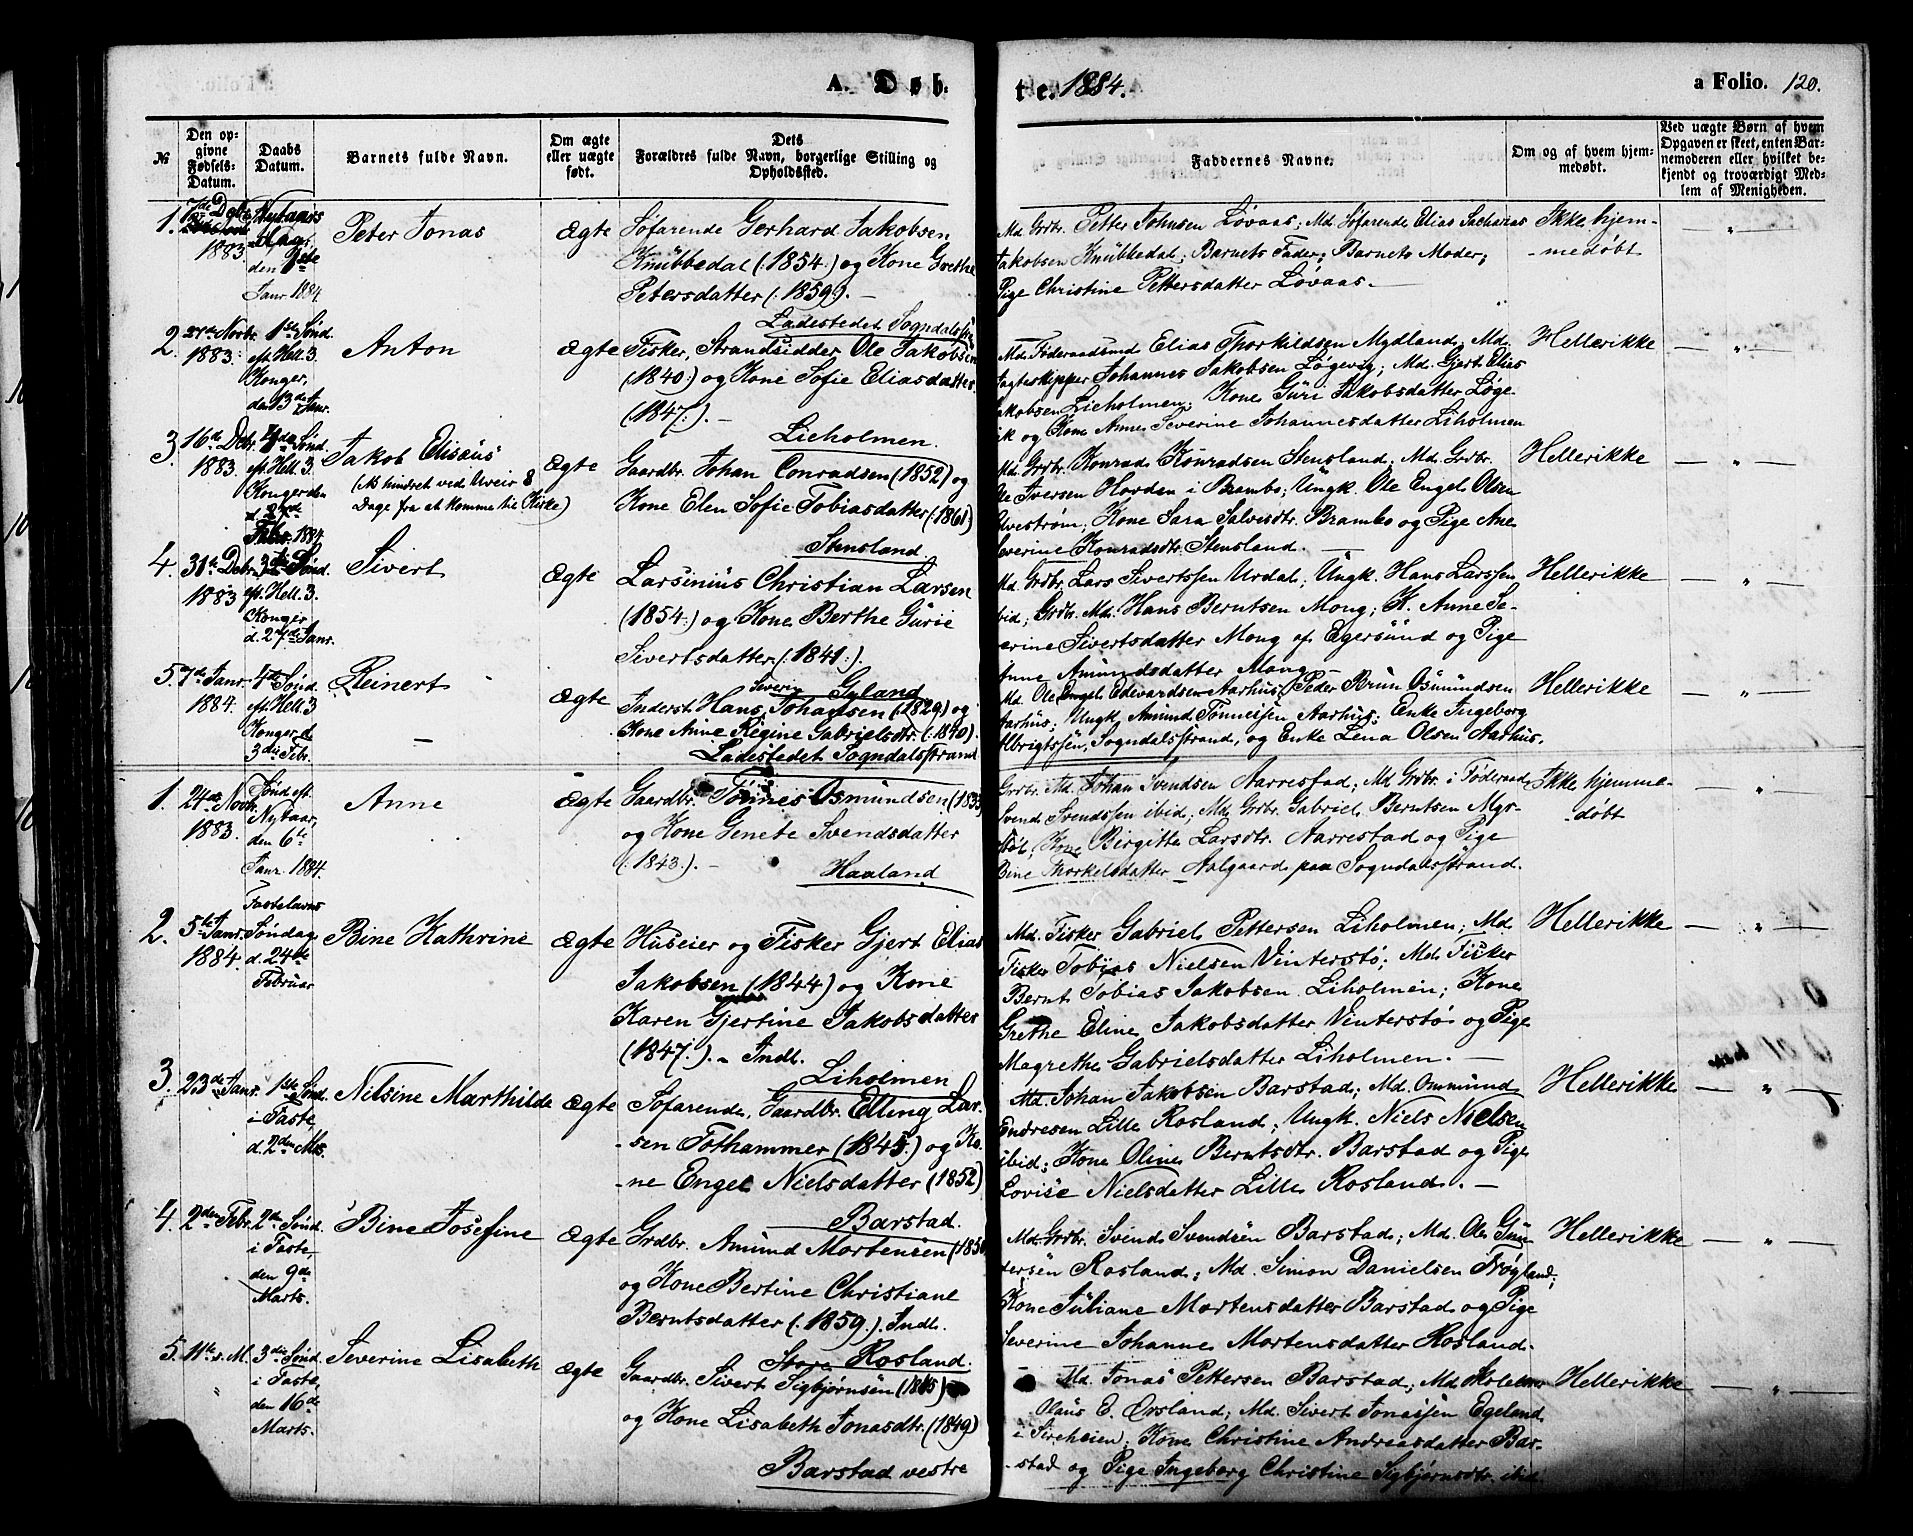 A. Døb-
te. 1884.
a Folio. 120.
№
Den op-
givne
Fødsels-
Datum.
Daabs
Datum.
Barnets fulde Navn.
Om ægte
eller uægte
født.
Dets
Forældres fulde Navn, borgerlige Stilling og
Opholdssted.
Faddernes Navne.
Om og af hvem hjem-
medøbt.
Ved uægte Børn af hvem
Opgaven er skeet, enten Bar-
nemoderen eller hvilket be-
kjendt og troværdigt Med-
lem af Menigheden.
1.
7de Decbr.
1883.
Nytaars
Dag,
den 1ste
Janr 1884
Peter Jonas
Ægte
Søfarende Gerhard Jakobsen
Knubbedal (:1854:) og Kone Grethe
Petersdatter (:1859:). —
Ladestedet Sogndalsstr.
Md. Grdbr. Petter Johnsen Løvaas; Md. Søfarende Elias Sacharias
Jakobsen Knubbedal; Barnets Fader; Barnets Moder;
Pige Christine Pettersdatter Løvaas. —
Ikke hjem-
-medøbt
— „ —
2.
27de Novbr.
1883.
1ste Sønd.
eft. Hell. 3.
Konger,
den 13de Janr.
Anton
Ægte
Fisker, Strandsidder Ole Jakobsen
(1840:) og Kone Sofie Eliasdatter
(1847.). —
Lieholmen.
Md. Føderaadsmd Elias Thorkildsen Mydland; Md.
Jagteskipper Johannes Jakobsen Løgevig; Md. Gjert Elias
Jakobsen Lieholmen; Kone Guri Jakobsdatter Løge-
vik og Kone Anne Severine Johannesdatter Liholmen
Hellerikke
— „ —
3.
16de Debr.
1883.
Sønd.
eft. Hell. 3.
Konger den
1884
Jakob Elisæus
(Ab hindret ved Uveir 8
Dage fra at komme til Kirke)
Ægte
Gaardbr. Johan Conradsen (1852) og
Kone Elen Sofie Tobiasdatter (:1861:)
Stensland.
Md. Grdbr. Konrad Konradsen Stensland; Md. Grdbr.
Ole Iversen Hovden i Brambo; Ungk. Ole Engel Olsen
Elvestrøm; Kone Sara Salvesdtr. Brambo og Pige Ane
Severine Konradsdtr. Stensland. —
Hellerikke
— „ —
4.
31te Debr.
1883
3die Sønd.
eft. Hell. 3.
Konger
d. 27de Janr.
Sivert
Ægte
Larsinius Christian Larsen
(1854:) og Kone Berthe Gurie
Sivertsdatter (:1841:).
Gyland
Md. Grdbr. Lars Sivertssen Urdal; Ungk. Hans Larssen
ibid; Grdbr. Md. Hans Berntsen Mong; K. Anne Se-
verine Sivertsdatter Mong af Egersund og Pige
Anne Amundsdatter Mong —
Hellerikke
— „ —
5.
7de Janr.
1884.
4de Sønd.
eft. Hell. 3
Konger d.
3die Febr.
Reinert
Ægte
Inderst Hans Severin Johansen (:1829:) og
Kone Anne Regine Gabrielsdtr. (:1840:).
Ladestedet Sogndalsstrand
Md. Ole Engel Edvardsen Aarhus; Peder Brun Osmundsen
Aarhus; Ungk. Amund Tønnesen Aarhus; Enke Ingeborg
Albrigtssen, Sogndalsstrand, og Enke Lena Olsen Aarhus.
Hellerikke
— „ —
1.
24de Novbr.
1883.
Sønd. eft.
Nytaar,
den 6te
Janr. 1884.
Anne
Ægte
Gaardbr. Tønnes Osmundsen
og Kone Genete Svendsdatter
(:1843:). —
Haaland
Grdbr. Md. Johan Svendsen Aarrestad; Md. Grdbr. i Føderaad
Svend Svendssen ibid; Md. Grdbr. Gabriel Berntsen
Kone Birgitte Larsdtr. Aarrestad og Pige
Bine Thorkelsdatter Aalgaard paa Sogndalsstrand.
Ikke hjemme-
-døbt
— „ —
2.
5te Janr.
1884.
Fastelavns
Søndag
d. 24de
Februar
Bine Kathrine
Ægte
Huseier og Fisker Gjert Elias
Jakobsen (1844) og Kone
Karen Gjertine Jakobsdatter
(1847.). - Indl.
Liholmen
Md. Fisker Gabriel Pettersen Liholmen; Md.
Fisker Tobias Nielsen Vinterstø; Md. Fisker
Bernt Tobias Jakobsen Liholmen; Kone
Grethe Eline Jakobsdatter Vinterstø og Pige
Magrethe Gabrielsdatter Liholmen. —
Hellerikke
— „ —
3.
23de Janr.
1ste Sønd.
i Faste,
d. 2den Mts.
Nilsine Marthilde
Ægte
Søfarende, Gaardbr. Elling Lar-
-sen Fothammer (1845.) og Ko-
-ne Engel Nielsdatter (1852)
Barstad.
Md. Johan Jakobsen Barstad; Md. Ommund
Endresen Lille Rosland; Ungk. Niels Nielsen
ibid; Kone Oline Berntsdtr. Barstad og Pige
Lovise Nielsdatter Lille Rosland. —
Hellerikke
— „ —
4.
2den Febr.
2den Sønd.
i Faste,
den 9de
Marts.
Bine Josefine
Ægte
Grdbr. Amund Mortensen
og Kone Bertine Christiane
Berntsdatter (:1859:). Indl.
Store Rosland.
Md. Grdbr. Svend Svendsen Barstad; Md. Ole Gun-
dersen Rosland; Md. Simon Danielsen Frøyland;
Kone Juliane Mortensdatter Barstad og Pige
Severine Johanne Mortensdatter Rosland.
Hellerikke
— „ —
5.
11te s. M.
3die Sønd.
i Faste,
den 16de
Marts.
Severine Lisabeth
Ægte
Gaardbr. Sivert Sigbjørnsen
og Kone Lisabeth Jonasdtr. (1849)
Barstad vestre
Md. Jonas Pettersen Barstad; Md. Skolelærer
Olaus E. Ørsland; Md. Sivert Jonassen Egeland
i Sireheien; Kone Christine Andreasdatter Bar-
-stad og Pige Ingeborg Christine Sigbjørnsdtr. ibid
Hellerikke
— „ —